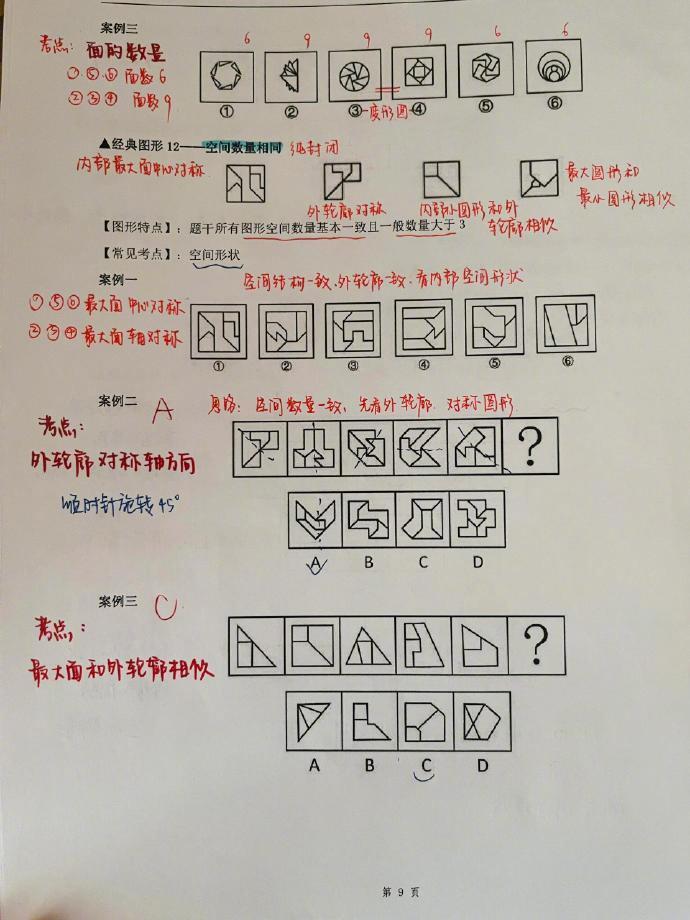 案例三
考点：面的数量
①⑤⑥面数6
②③④面数9
6 9 9 9 6 6
① ② ③ 变形图 ④ ⑤ ⑥
▲经典图形 12——空间数量相同 纯封闭
内部最大面中心对称
外轮廓对称
内部小图形和外轮廓相似
最大图形和最小图形相似
【图形特点】：题干所有图形空间数量基本一致且一般数量大于 3
【常见考点】：空间形状
案例一
空间结构一致、外轮廓一致、看内部空间形状
①⑤⑥最大面中心对称
②③④最大面轴对称
① ② ③ ④ ⑤ ⑥
案例二 A
思路：空间数量一致，先看外轮廓．对称图形
考点：
外轮廓对称轴方向
顺时针旋转45°
?
A B C D
案例三 C
考点：
最大面和外轮廓相似
?
A B C D
第 9 页